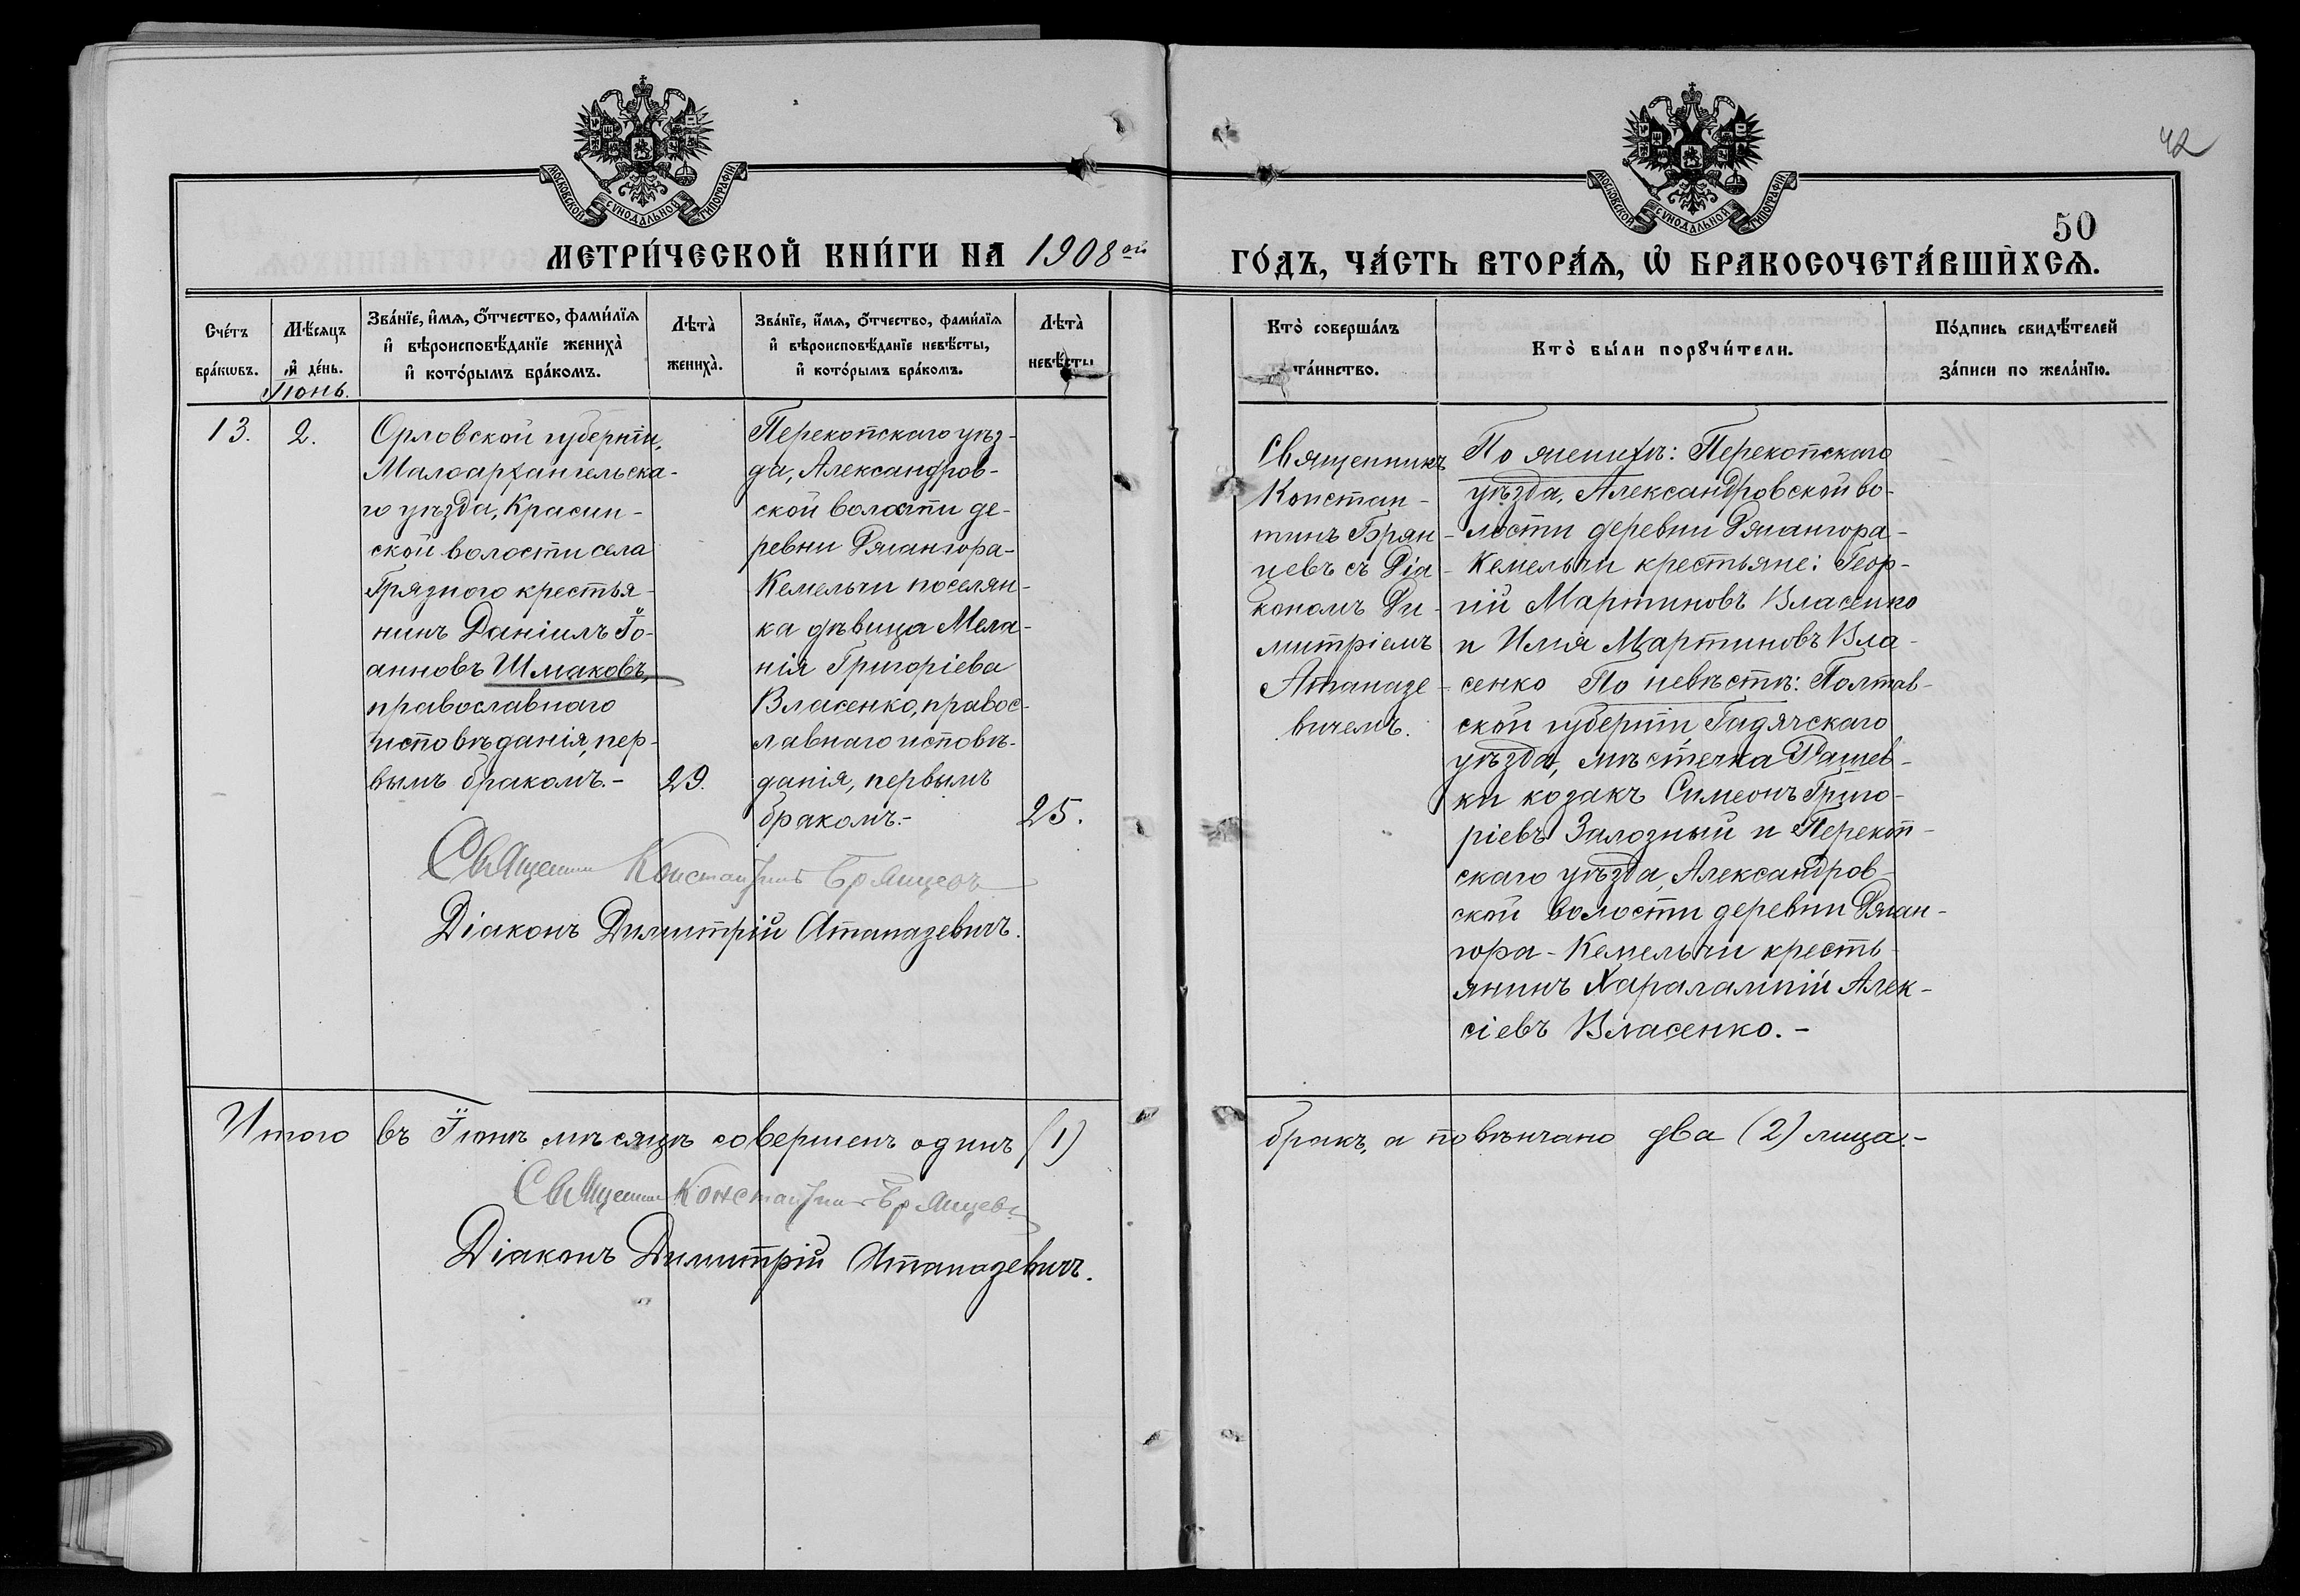 42
50
МОСКОВСКОЙ СУНОДАЛЬНОЙ ТИПОГРАФІИ.
МОСКОВСКОЙ СУНОДАЛЬНОЙ ТИПОГРАФІИ.
МЕТРИ́ЧЕСКОЙ КНИ́ГИ НА 1908ой
ГО́ДЪ, ЧА́СТЬ ВТОРА́Ѧ, Ѡ БРАКОСОЧЕТА́ВШИХСѦ.
Сче́тъ
бра́кѡвъ.
Мѣ́сяцъ
и де́нь.
Зва́нїе, и́мѧ, о́тчество, фами́лїѧ
и вѣроисповѣ́данїе жениха̀
и кото́рымъ бра́комъ.
Лѣта̀
жениха̀.
Зва́нїе, и́мѧ, о́тчество, фами́лїѧ
и вѣроисповѣ́данїе невѣ́сты,
и кото́рымъ бра́комъ.
Лѣта̀
невѣ́сты
Кто̀ соверша́лъ
та́инство.
Кто̀ бы́ли порꙋчи́тели.
По́дпись свидѣ́телей
за́писи по жела́нїю.
Іюнь.
13.
2.
Орловской губерніи,
Малоархангельска-
го уѣзда, Красин-
ской волости села
Грязного крестья-
нинъ Даніилъ Іо-
анновъ Шмаковъ,
православнаго
исповѣданія, пер-
вымъ бракомъ.-
29.
Перекопскаго уѣз-
да, Александров-
ской волости де-
ревни Джангора-
Кемельчи поселян-
ка дѣвица Мела-
нія Григоріева
Власенко, правос-
лавнаго исповѣ-
данія, первымъ
бракомъ.-
25.
Священникъ
Констан-
тинъ Брян-
цевъ съ Діа-
кономъ Ди-
митріемъ
Атаназе-
вичемъ.
По женихѣ: Перекопскаго
уѣзда, Александровской во-
лости деревни Джангора-
Кемельчи крестьяне: Геор-
гій Мартиновъ Власенко
и Илія Мартиновъ Вла-
сенко По невѣстѣ: Полтав-
ской губерніи, Гадячскаго
уѣзда, мѣстечка Рашев-
ки козакъ Симеонъ Григо-
ріевъ Залозный и Перекоп-
скаго уѣзда, Александров-
ской волости деревни Джан-
гора-Кемельчи кресть-
янинъ Харалампій Алек-
сіевъ Власенко.-
Священникъ Константинъ Брянцевъ
Діаконъ Димитрій Атаназевичъ.
Итого въ Іюнѣ мѣсяцѣ совершенъ одинъ (1)
бракъ, а повѣнчано два (2) лица.-
Священникъ Константинъ Брянцевъ
Діаконъ Димитрій Атаназевичъ.